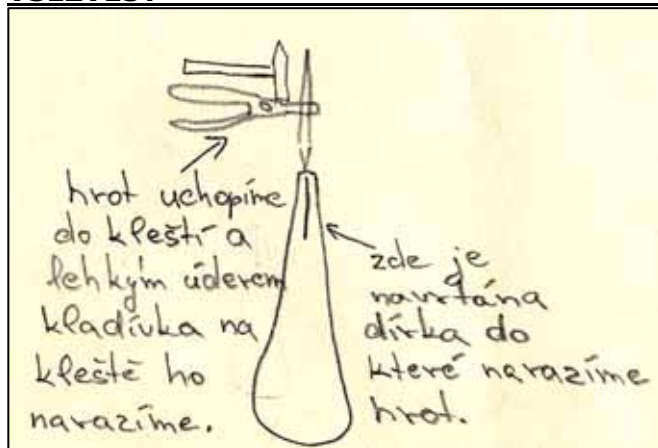 hrot uchopíme
do kleští a
lehkým úderem
kladívka na
kleště ho
narazíme.
zde je
navrtána
dírka do
které narazíme
hrot.